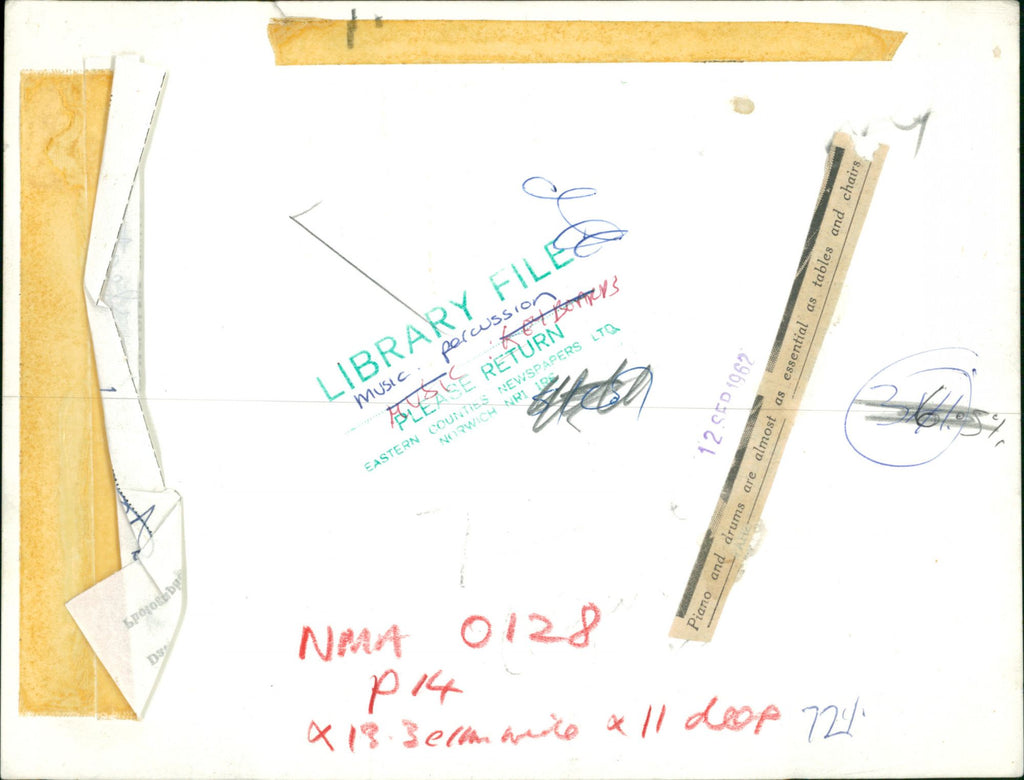 LIBRARY FILE
music percussion
MUSIC KEYBOARDS
PLEASE RETURN
EASTERN COUNTIES NEWSPAPERS LTD
NORWICH NR1 1RE
12 SEP 1962
Piano and drums are almost as essential as tables and chairs
1
Photograph
NMA 0128
P 14
x 18.3 ems wide x 11 deep 72%